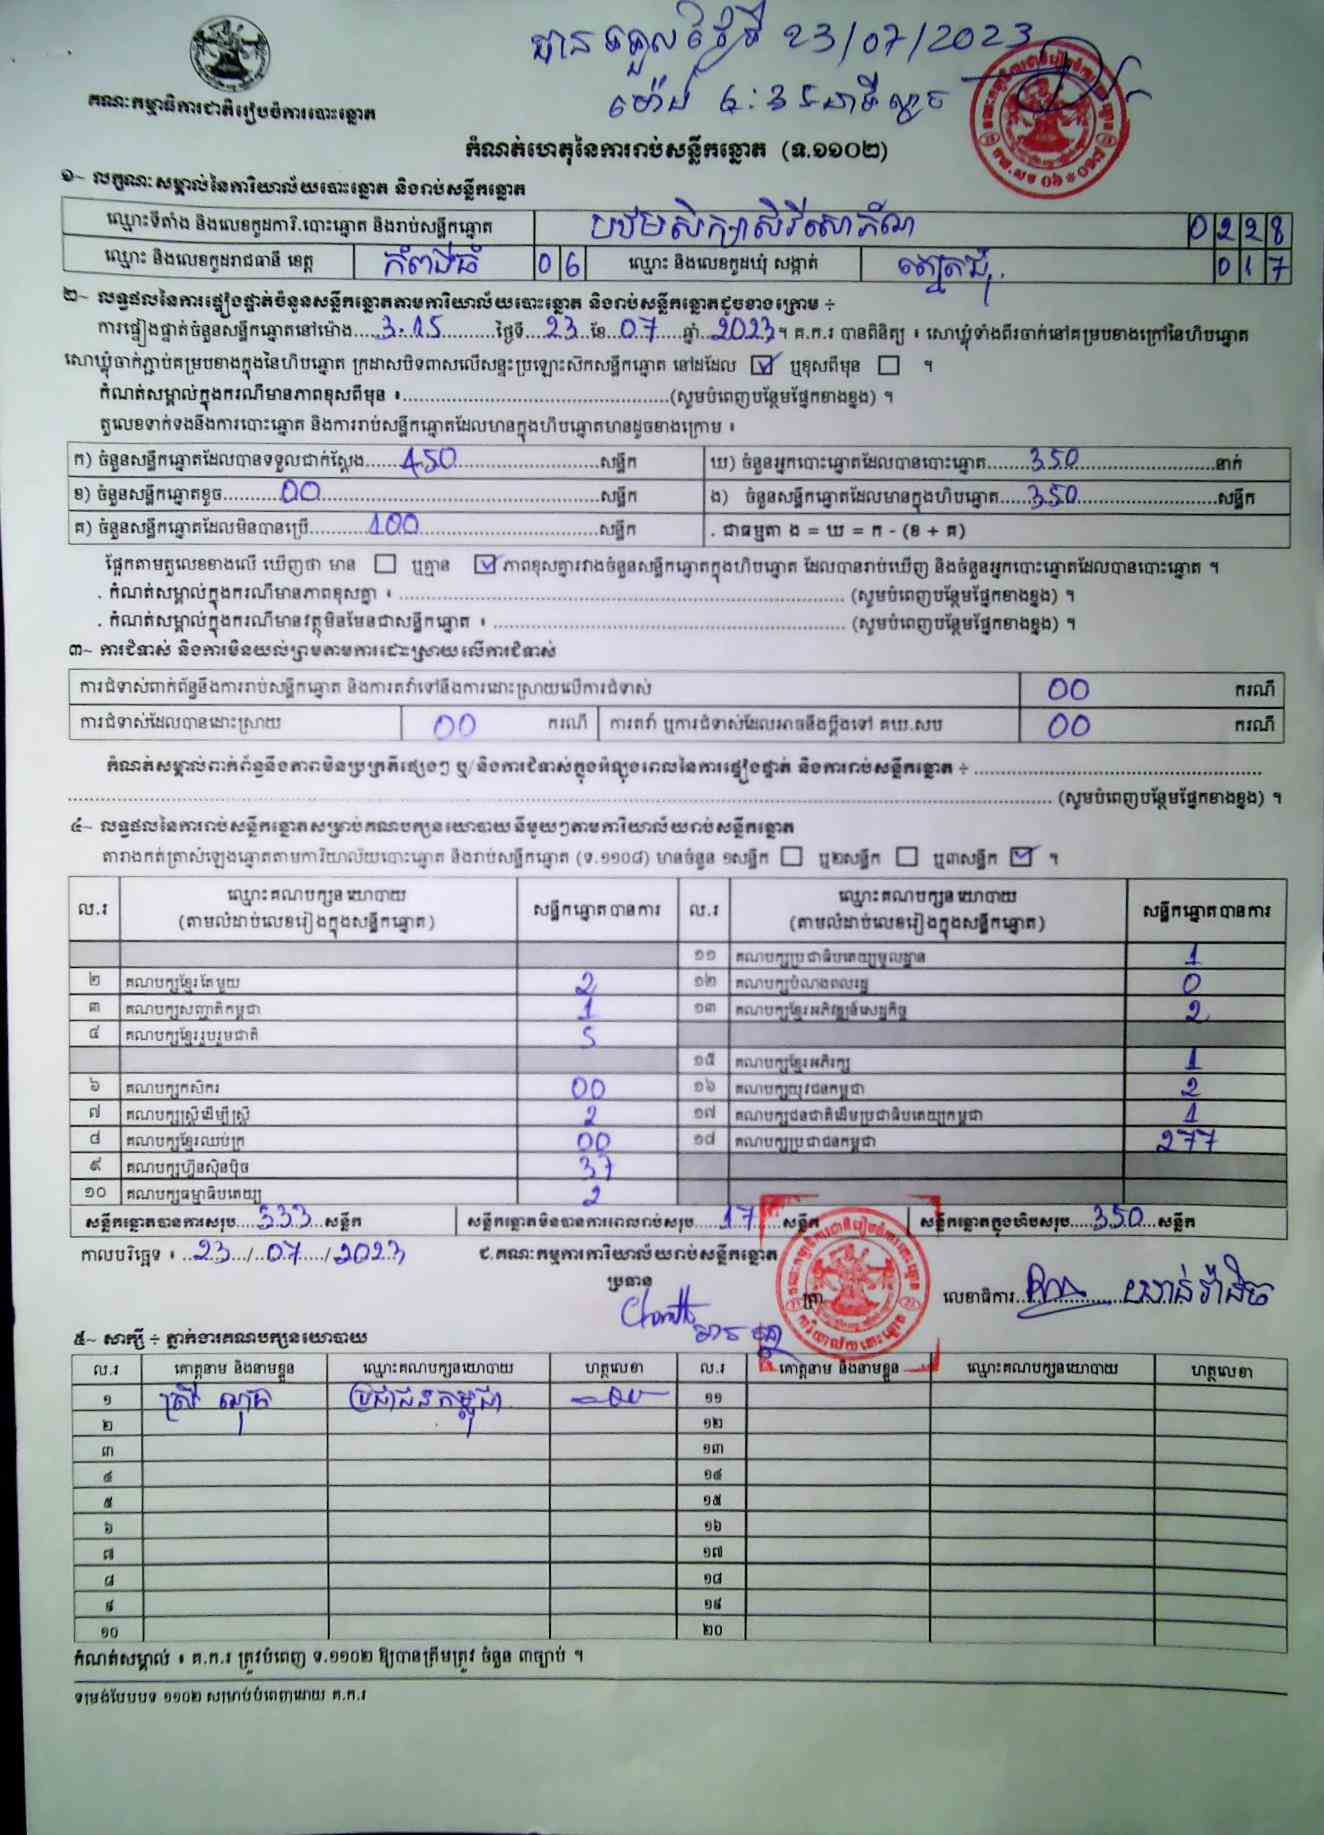 បានទទួលថ្ងៃទី 23/07/2023
ម៉ោង 4:35 នាទីល្ងាច
គណៈកម្មាធិការជាតិរៀបចំការបោះឆ្នោត
កំណត់ហេតុនៃការរាប់សន្លឹកឆ្នោត (ទ.១១០២)
១~ លក្ខណៈសម្គាល់នៃការិយាល័យបោះឆ្នោត និងរាប់សន្លឹកឆ្នោត
ឈ្មោះទីតាំង និងលេខកូដការិ.បោះឆ្នោត និងរាប់សន្លឹកឆ្នោត បឋមសិក្សាសិរីសោភ័ណ 0228
ឈ្មោះ និងលេខកូដរាជធានី ខេត្ត កំពង់ធំ 06 ឈ្មោះ និងលេខកូដឃុំ សង្កាត់ ត្នោតជុំ 017
២~ លទ្ធផលនៃការផ្ទៀងផ្ទាត់ចំនួនសន្លឹកឆ្នោតតាមការិយាល័យបោះឆ្នោត និងរាប់សន្លឹកឆ្នោតដូចខាងក្រោម ÷
ការផ្ទៀងផ្ទាត់ចំនួនសន្លឹកឆ្នោតនៅម៉ោង 3:15 ថ្ងៃទី 23 ខែ 07 ឆ្នាំ 2023 ។ គ.ក.រ បានពិនិត្យ ៖ សោឃ្លុំទាំងពីរចាក់នៅគម្របខាងក្រៅនៃហិបឆ្នោត
សោឃ្លុំចាក់ភ្ជាប់គម្របខាងក្នុងនៃហិបឆ្នោត ក្រដាសបិទពាសលើសន្ទះប្រឡោះស៊កសន្លឹកឆ្នោត នៅដដែល ☑ ឬខុសពីមុន ☐ ។
កំណត់សម្គាល់ក្នុងករណីមានភាពខុសពីមុន ៖ (សូមបំពេញបន្ថែមផ្នែកខាងខ្នង) ។
តួលេខទាក់ទងនឹងការបោះឆ្នោត និងការរាប់សន្លឹកឆ្នោតដែលមានក្នុងហិបឆ្នោតមានដូចខាងក្រោម ៖
ក) ចំនួនសន្លឹកឆ្នោតដែលបានទទួលជាក់ស្តែង 450 សន្លឹក ឃ) ចំនួនអ្នកបោះឆ្នោតដែលបានបោះឆ្នោត 350 នាក់
ខ) ចំនួនសន្លឹកឆ្នោតខូច 00 សន្លឹក ង) ចំនួនសន្លឹកឆ្នោតដែលមានក្នុងហិបឆ្នោត 350 សន្លឹក
គ) ចំនួនសន្លឹកឆ្នោតដែលមិនបានប្រើ 100 សន្លឹក . ជាធម្មតា ង = ឃ = ក - (ខ + គ)
ផ្អែកតាមតួលេខខាងលើ ឃើញថា មាន ☐ ឬគ្មាន ☑ ភាពខុសគ្នារវាងចំនួនសន្លឹកឆ្នោតក្នុងហិបឆ្នោត ដែលបានរាប់ឃើញ និងចំនួនអ្នកបោះឆ្នោតដែលបានបោះឆ្នោត ។
. កំណត់សម្គាល់ក្នុងករណីមានភាពខុសគ្នា ៖ (សូមបំពេញបន្ថែមផ្នែកខាងខ្នង) ។
. កំណត់សម្គាល់ក្នុងករណីមានវត្ថុមិនមែនជាសន្លឹកឆ្នោត ៖ (សូមបំពេញបន្ថែមផ្នែកខាងខ្នង) ។
៣~ ការជំទាស់ និងការមិនយល់ព្រមតាមការដោះស្រាយលើការជំទាស់
ការជំទាស់ពាក់ព័ន្ធនឹងការរាប់សន្លឹកឆ្នោត និងការតវ៉ាទៅនឹងការដោះស្រាយលើការជំទាស់ 00 ករណី
ការជំទាស់ដែលបានដោះស្រាយ 00 ករណី ការតវ៉ា ឬការជំទាស់ដែលអាចនឹងប្តឹងទៅ គឃ.សប 00 ករណី
កំណត់សម្គាល់ពាក់ព័ន្ធនឹងភាពមិនប្រក្រតីផ្សេងៗ ឬ/និងការជំទាស់ក្នុងអំឡុងពេលនៃការផ្ទៀងផ្ទាត់ និងការរាប់សន្លឹកឆ្នោត ÷
(សូមបំពេញបន្ថែមផ្នែកខាងខ្នង) ។
៤~ លទ្ធផលនៃការរាប់សន្លឹកឆ្នោតសម្រាប់គណបក្សនយោបាយនីមួយៗតាមការិយាល័យរាប់សន្លឹកឆ្នោត
តារាងកត់ត្រាសំឡេងឆ្នោតតាមការិយាល័យបោះឆ្នោត និងរាប់សន្លឹកឆ្នោត (ទ.១១០៨) មានចំនួន ១សន្លឹក ☐ ឬ២សន្លឹក ☐ ឬ៣សន្លឹក ☑ ។
ល.រ ឈ្មោះគណបក្សនយោបាយ (តាមលំដាប់លេខរៀងក្នុងសន្លឹកឆ្នោត) សន្លឹកឆ្នោតបានការ ល.រ ឈ្មោះគណបក្សនយោបាយ (តាមលំដាប់លេខរៀងក្នុងសន្លឹកឆ្នោត) សន្លឹកឆ្នោតបានការ
១១ គណបក្សប្រជាធិបតេយ្យមូលដ្ឋាន 1
២ គណបក្សខ្មែរតែមួយ 2 ១២ គណបក្សបំណងពលរដ្ឋ 0
៣ គណបក្សសញ្ជាតិកម្ពុជា 1 ១៣ គណបក្សខ្មែរអភិវឌ្ឍន៍សេដ្ឋកិច្ច 2
៤ គណបក្សខ្មែររួបរួមជាតិ 5
១៥ គណបក្សខ្មែរអភិរក្ស 1
៦ គណបក្សកសិករ 00 ១៦ គណបក្សយុវជនកម្ពុជា 2
៧ គណបក្សស្រ្តីដើម្បីស្រ្តី 2 ១៧ គណបក្សជនជាតិដើមប្រជាធិបតេយ្យកម្ពុជា 1
៨ គណបក្សខ្មែរឈប់ក្រ 00 ១៨ គណបក្សប្រជាជនកម្ពុជា 277
៩ គណបក្សហ៊្វុនស៊ិនប៉ិច 37
១០ គណបក្សធម្មាធិបតេយ្យ 2
សន្លឹកឆ្នោតបានការសរុប 333 សន្លឹក សន្លឹកឆ្នោតមិនបានការពេលរាប់សរុប 17 សន្លឹក សន្លឹកឆ្នោតក្នុងហិបសរុប 350 សន្លឹក
កាលបរិច្ឆេទ ៖ 23/07/2023 ជ.គណៈកម្មការការិយាល័យរាប់សន្លឹកឆ្នោត
ប្រធាន
ត្រា លេខាធិការ
៥~ សាក្សី ÷ ភ្នាក់ងារគណបក្សនយោបាយ
ល.រ គោត្តនាម និងនាមខ្លួន ឈ្មោះគណបក្សនយោបាយ ហត្ថលេខា ល.រ គោត្តនាម និងនាមខ្លួន ឈ្មោះគណបក្សនយោបាយ ហត្ថលេខា
១ ប្រជាជនកម្ពុជា ១១
២ ១២
៣ ១៣
៤ ១៤
៥ ១៥
៦ ១៦
៧ ១៧
៨ ១៨
៩ ១៩
១០ ២០
កំណត់សម្គាល់ ៖ គ.ក.រ ត្រូវបំពេញ ទ.១១០២ ឱ្យបានត្រឹមត្រូវ ចំនួន ៣ច្បាប់ ។
ទម្រង់បែបបទ ១១០២ សម្រាប់បំពេញដោយ គ.ក.រ